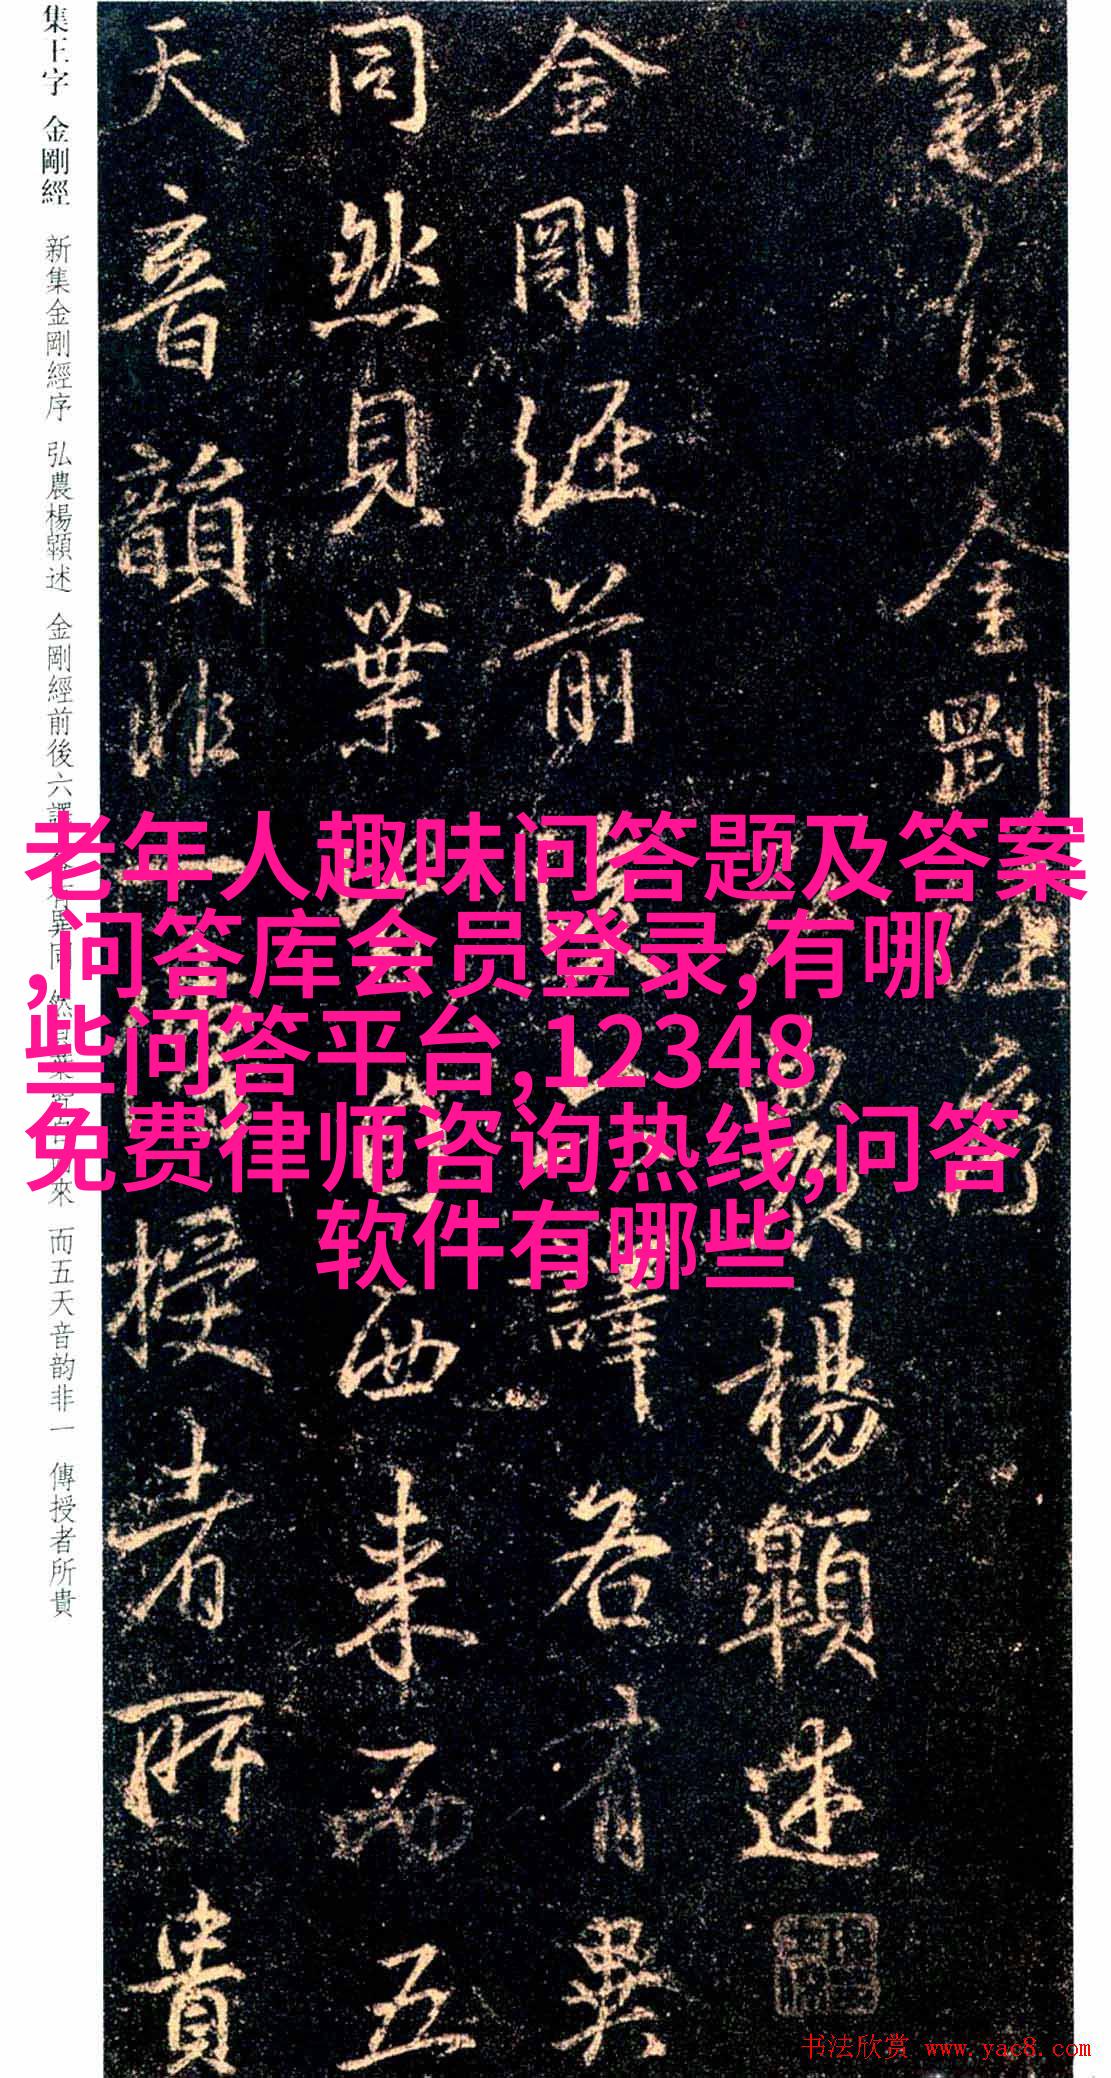 新集金剛經序
弘農楊顥述
金剛經前後六譯各有異
同然貝葉
西來而五
天音韻非一傳授者所貴
集王字 金剛經 新集金剛經序 弘農楊顥述 金剛經前後六譯
異同
來 而五天音韵非一 傳授者所貴
老年人趣味问答题及答案
,问答库会员登录,有哪
些问答平台,12348
免费律师咨询热线,问答
软件有哪些
书法欣赏 www.yac8.com